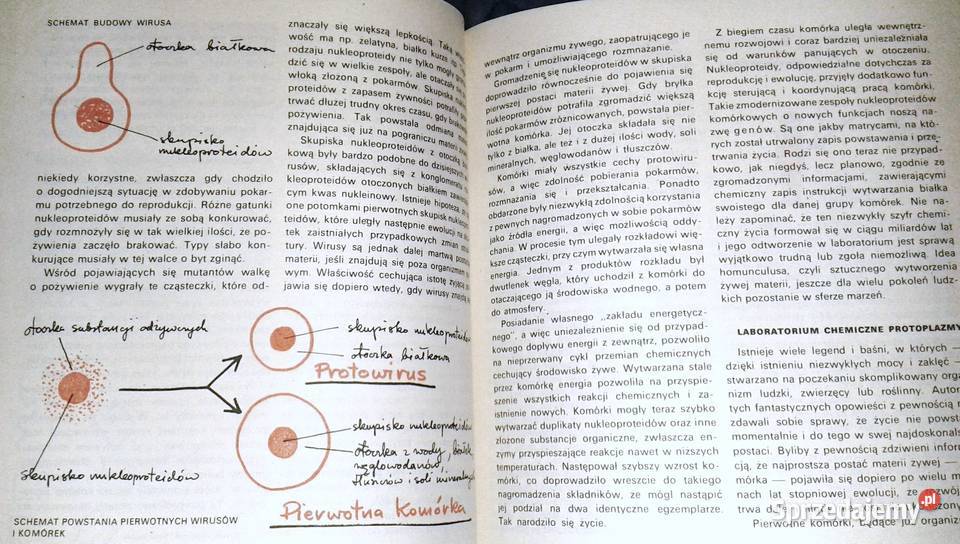 SCHEMAT BUDOWY WIRUSA
otoczka białkowa
skupisko
nukleoproteidów
niekiedy korzystne, zwłaszcza gdy chodziło
o dogodniejszą sytuację w zdobywaniu pokar-
mu potrzebnego do reprodukcji. Różne gatunki
nukleoproteidów musiały ze sobą konkurować,
gdy rozmnożyły się w tak wielkiej ilości, że po-
żywienia zaczęło brakować. Typy słabo kon-
kurujące musiały w tej walce o byt zginąć.
Wśród pojawiających się mutantów walkę
o pożywienie wygrały te cząsteczki, które od-
znaczały się większą lepkością. Taką
wość ma np. żelatyna, białko kurze
rodzaju nukleoproteidy nie tylko mogły
dzić się w wielkie zespoły, ale otaczały się
włoką złożoną z pokarmów. Skupiska
proteidów z zapasem żywności potrafiły
trwać dłuższy trudny okres czasu, gdy
pożywienia. Tak powstała odmiana
znajdująca się już na pograniczu materii
Skupiska nukleoproteidów z otoczką
kową były bardzo podobne do dzisiejszych
rusów, składających się z konglomeratu
kleoproteidów otoczonych białkiem
cym kwas nukleinowy. Istnieje hipoteza, że
one potomkami pierwotnych skupisk
teidów, które uległy następnie ewolucji na
tek zaistniałych przypadkowych zmian
tury. Wirusy są jednak dalej martwą
materii, jeśli znajdują się poza organizmem
wym. Właściwość cechująca istotę żyjącą
jawia się dopiero wtedy, gdy wirusy znajdą się
otoczka substancji odżywczych
skupisko nukleoproteidów
skupisko nukleoproteidów
otoczka białkowa
Protowirus
skupisko nukleoproteidów
otoczka z wody, białek
węglowodanów,
tłuszczów i soli mineralnych
Pierwotna Komórka
SCHEMAT POWSTANIA PIERWOTNYCH WIRUSÓW
I KOMÓREK
wewnątrz organizmu żywego, zaopatrującego je
w pokarm i umożliwiającego rozmnażanie.
Gromadzenie się nukleoproteidów w skupiska
doprowadziło równocześnie do pojawienia się
pierwszej postaci materii żywej. Gdy bryłka
nukleoproteidów potrafiła zgromadzić większą
ilość pokarmów zróżnicowanych, powstała pier-
wotna komórka. Jej otoczka składała się nie
tylko z białka, ale też i z dużej ilości wody, soli
mineralnych, węglowodanów i tłuszczów.
Komórki miały wszystkie cechy protowiru-
sów, a więc zdolność pobierania pokarmów,
rozmnażania się i przekształcania. Ponadto
obdarzone były niezwykłą zdolnością korzystania
z pewnych nagromadzonych w sobie pokarmów
jako źródła energii, a więc możliwością oddy-
chania. W procesie tym ulegały rozkładowi więk-
sze cząsteczki, przy czym wytwarzała się własna
energia. Jednym z produktów rozkładu był
dwutlenek węgla, który uchodził z komórki do
otaczającego ją środowiska wodnego, a potem
do atmosfery.
Posiadanie własnego „zakładu energetycz-
nego", a więc uniezależnienie się od przypad-
kowego dopływu energii z zewnątrz, pozwoliło
na nieprzerwany cykl przemian chemicznych
cechujący środowisko żywe. Wytwarzana stale
przez komórkę energia pozwoliła na przyspie-
szenie wszystkich reakcji chemicznych i za-
istnienie nowych. Komórki mogły teraz szybko
wytwarzać duplikaty nukleoproteidów oraz inne
złożone substancje organiczne, zwłaszcza en-
zymy przyspieszające reakcje nawet w niższych
temperaturach. Następował szybszy wzrost ko-
mórki, co doprowadziło wreszcie do takiego
nagromadzenia składników, że mógł nastąpić
jej podział na dwa identyczne egzemplarze.
Tak narodziło się życie.
Z biegiem czasu komórka uległa wewnętrz-
nemu rozwojowi i coraz bardziej uniezależniała
się od warunków panujących w otoczeniu.
Nukleoproteidy, odpowiedzialne dotychczas za
reprodukcję i ewolucję, przyjęły dodatkowo fun-
kcję sterującą i koordynującą pracą komórki.
Takie zmodernizowane zespoły nukleoproteidów
komórkowych o nowych funkcjach noszą na-
zwę genów. Są one jakby matrycami, na któ-
rych został utrwalony zapis powstawania i prze-
trwania życia. Rodzi się ono teraz nie przypad-
kowo, jak niegdyś, lecz planowo, zgodnie ze
zgromadzonymi informacjami, zawierającymi
chemiczny zapis instrukcji wytwarzania białka
swoistego dla danej grupy komórek. Nie na-
leży zapominać, że ten niezwykły szyfr chemi-
czny życia formował się w ciągu miliardów lat
i jego odtworzenie w laboratorium jest sprawą
wyjątkowo trudną lub zgoła niemożliwą. Idea
homunculusa, czyli sztucznego wytworzenia
żywej materii, jeszcze dla wielu pokoleń ludz-
kich pozostanie w sferze marzeń.
LABORATORIUM CHEMICZNE PROTOPLAZMY
Istnieje wiele legend i baśni, w których —
dzięki istnieniu niezwykłych mocy i zaklęć —
stwarzano na poczekaniu skomplikowany orga-
nizm ludzki, zwierzęcy lub roślinny. Autorzy
tych fantastycznych opowieści z pewnością
zdawali sobie sprawy, że życie nie powstało
momentalnie i do tego w swej najdoskonalszej
postaci. Byliby z pewnością zdziwieni
cją, że najprostsza postać materii żywej —
mórka — pojawiła się dopiero po wielu
nach lat stopniowej ewolucji, że rozwój
Pierwotne komórki, będące już
Sprzedajemy.pl